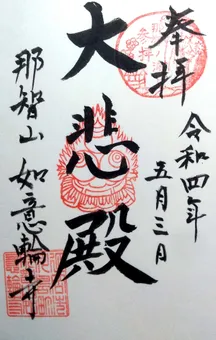 奉拝
令和四年
五月三日
大悲殿
那智山 如意輪寺